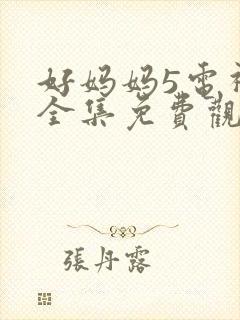 好妈妈5电视
全集免費觀
張丹露